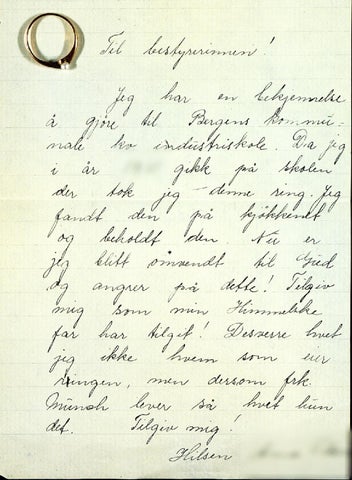 Til bestyrerinnen!
Jeg har en bekjennelse
å gjöre til Bergens kommu-
nale kv industriskole. Da jeg
i år gikk på skolen
der tok jeg denne ring. Jeg
fandt den på kjökkenet
og beholdt den. Nu er
jeg blitt omvendt til Gud
og angrer på dette! Tilgiv
mig som min Himmelske
far har tilgit! Desverre hvet
jeg ikke hvem som eier
ringen, men dersom frk.
Münch lever så hvet hun
det. Tilgiv mig!
Hilsen